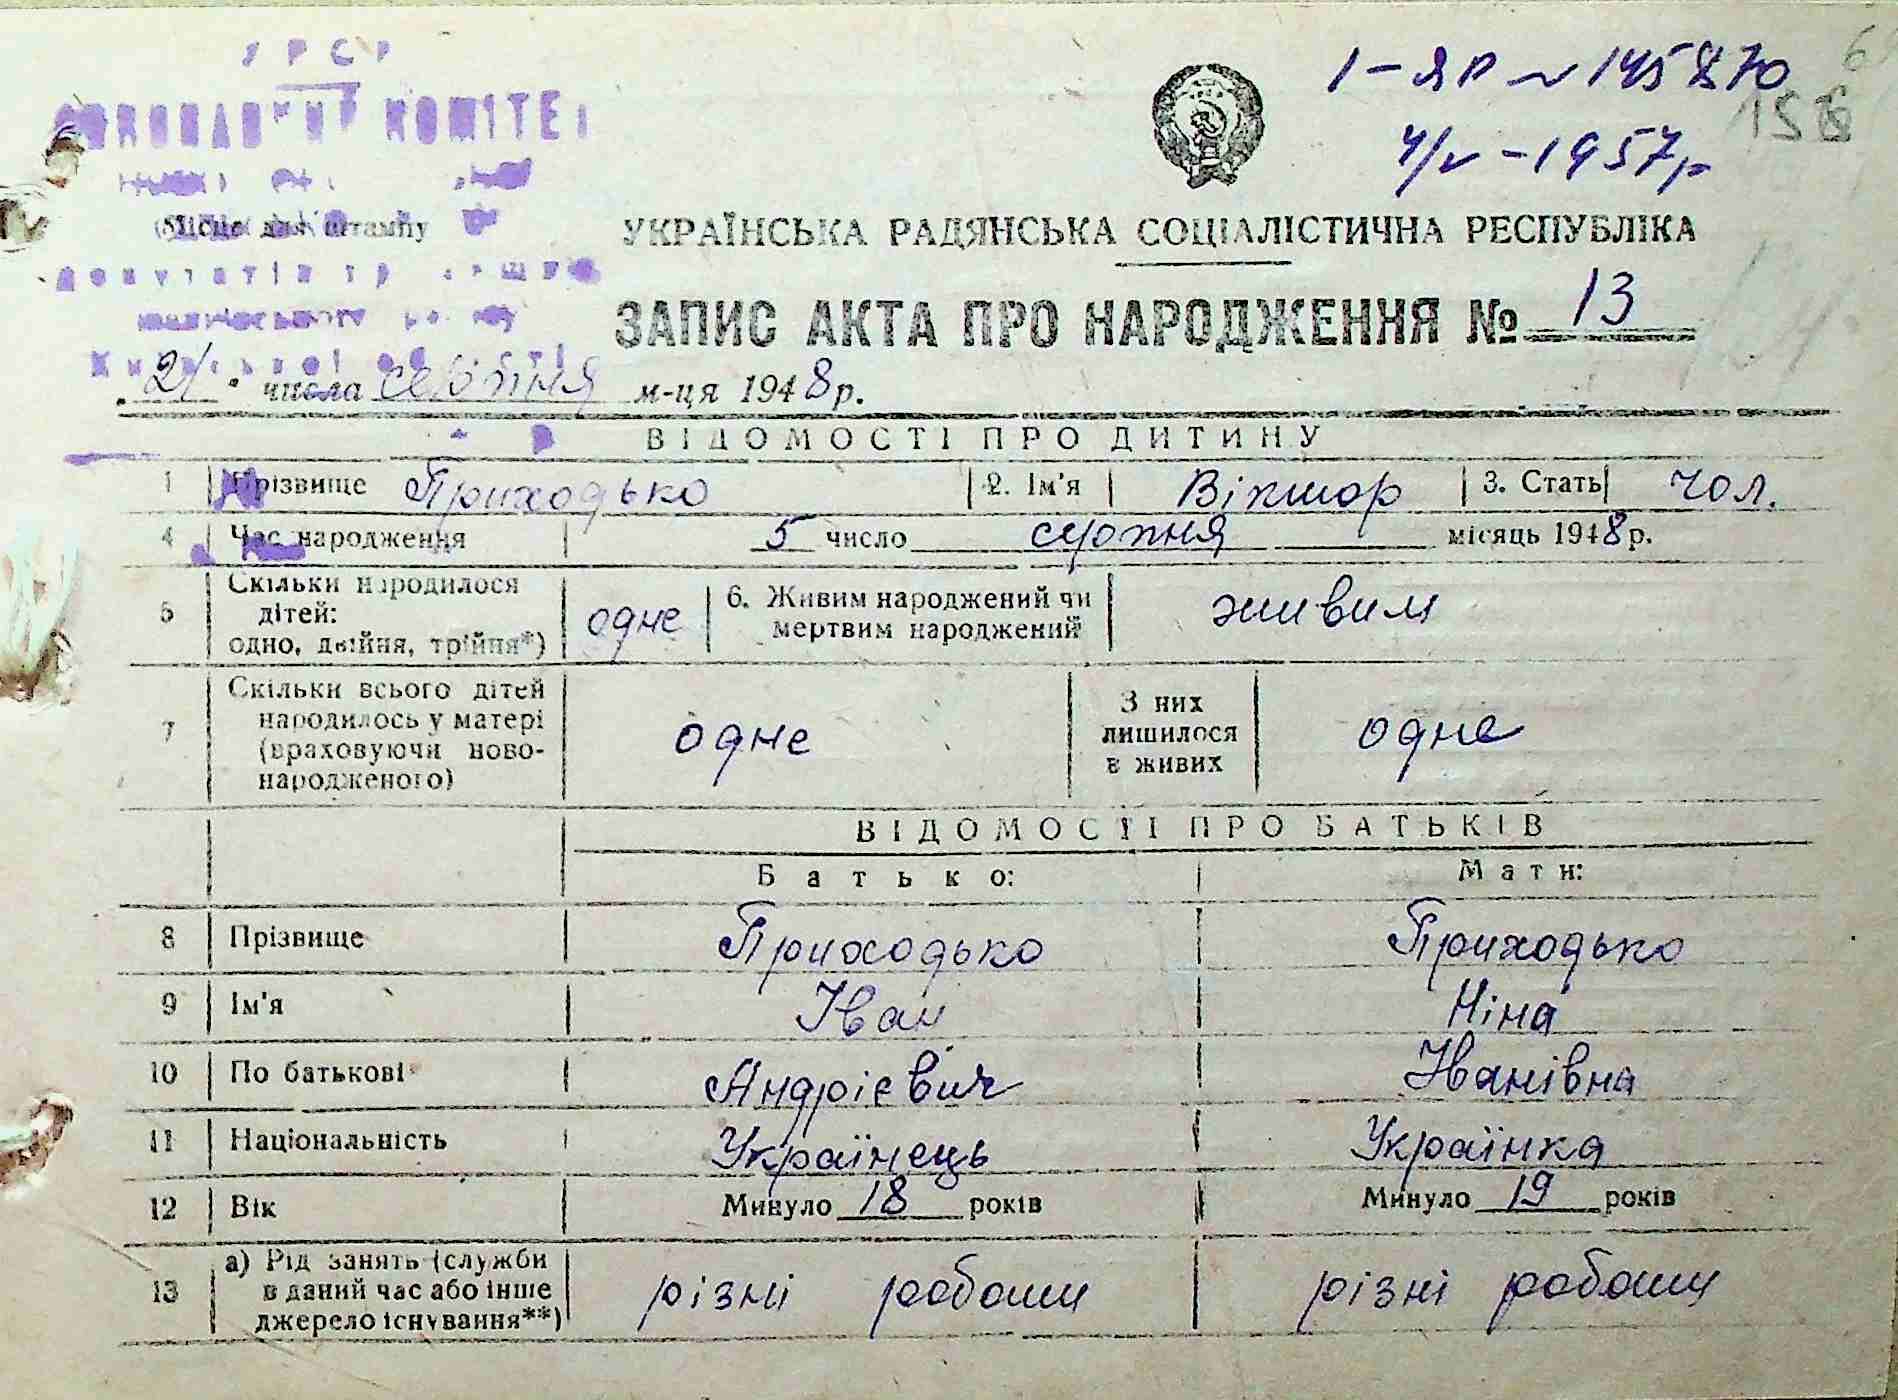 УРСР
І-ЯР № 145870
ВИКОНАВЧИЙ КОМІТЕТ
4/V - 1957 р
(Місце для штампу
УКРАЇНСЬКА РАДЯНСЬКА СОЦІАЛІСТИЧНА РЕСПУБЛІКА
депутатів трудящих
ЗАПИС АКТА ПРО НАРОДЖЕННЯ № 13
Київської області
„21“ числа серпня м-ця 1948 р.
ВІДОМОСТІ ПРО ДИТИНУ
1 Прізвище Приходько 2. Ім'я Віктор 3. Стать чол.
4 Час народження 5 число серпня місяць 1948 р.
5 Скільки народилося дітей: одно, двійня, трійня*) одне 6. Живим народжений чи мертвим народжений живим
7 Скільки всього дітей народилось у матері (враховуючи ново-народженого) одне З них лишилося в живих одне
ВІДОМОСТІ ПРО БАТЬКІВ
Батько: Мати:
8 Прізвище Приходько Приходько
9 Ім'я Іван Ніна
10 По батькові Андрієвич Іванівна
11 Національність Українець Українка
12 Вік Минуло 18 років Минуло 19 років
13 а) Рід занять (служби в даний час або інше джерело існування**) різні роботи різні роботи